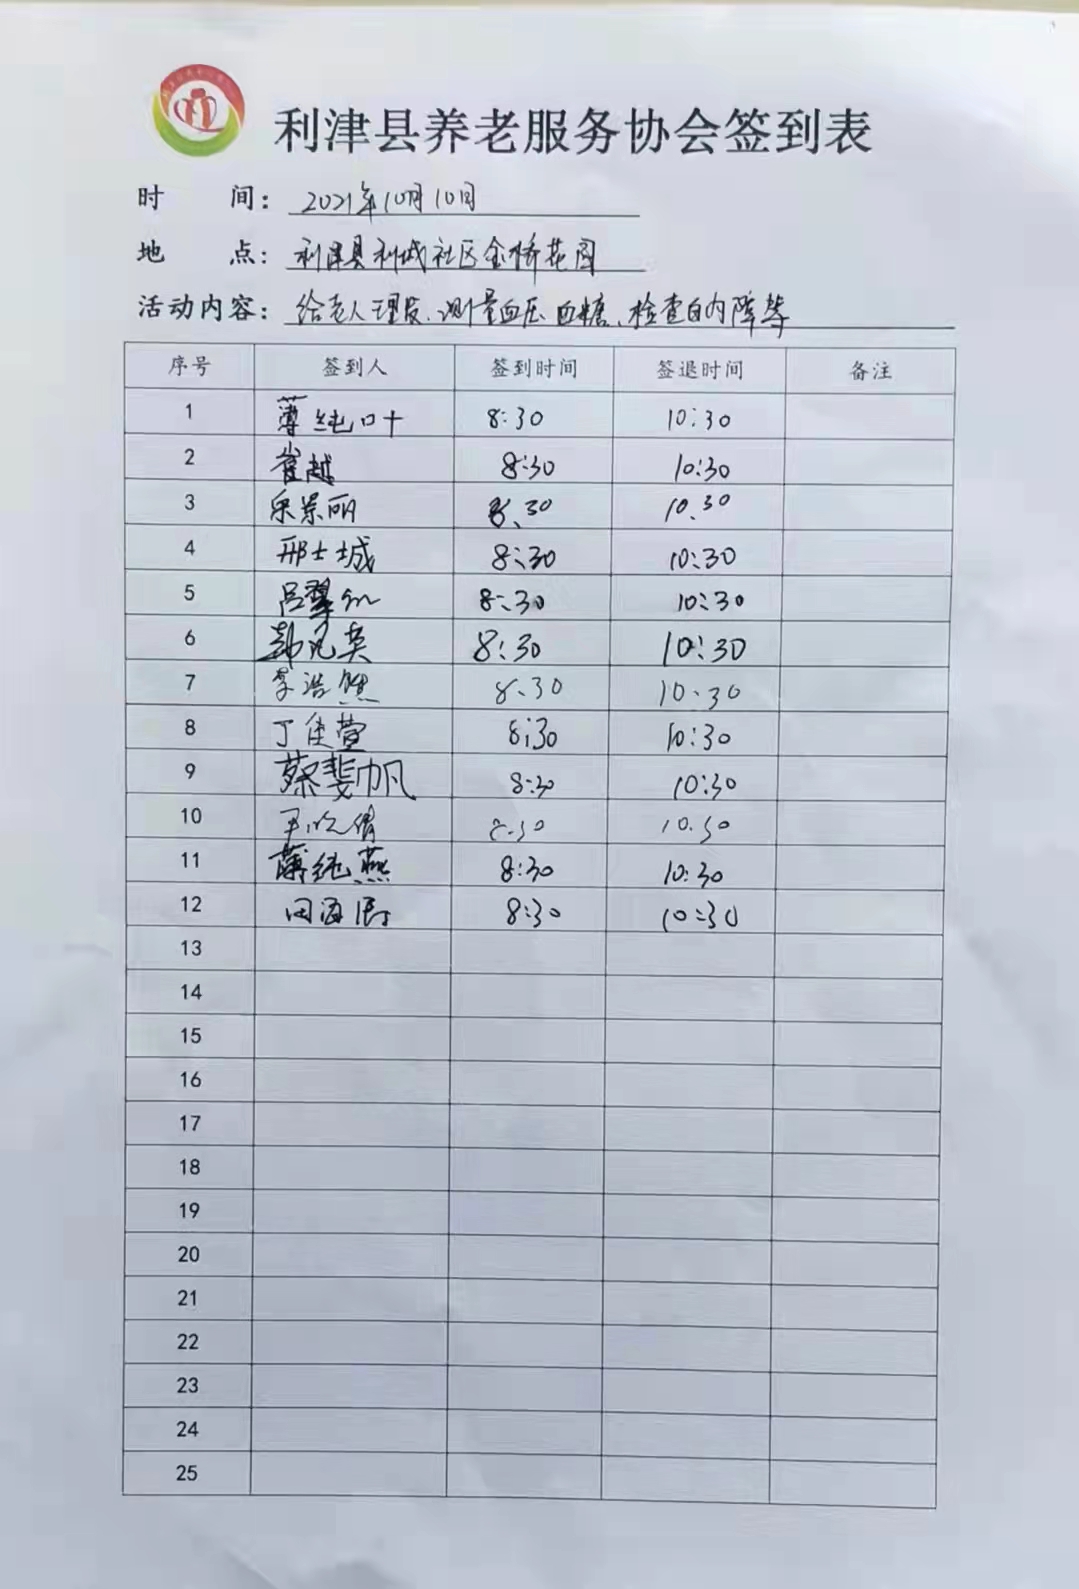 利津县养老服务协会签到表
时 间: 2021年10月10日
地 点: 利津县利城社区金桥花园
活动内容: 给老人理发、测量血压、血糖、检查白内障等
序号 签到人 签到时间 签退时间 备注
1 薄纯叶 8:30 10:30
2 崔越 8:30 10:30
3 景丽 8:30 10:30
4 邢士城 8:30 10:30
5 吕翠 8:30 10:30
6 英 8:30 10:30
7 李浩然 8:30 10:30
8 丁佳萱 8:30 10:30
9 蔡斐帆 8:30 10:30
10 8:30 10:30
11 薄纯燕 8:30 10:30
12 田海 8:30 10:30
13
14
15
16
17
18
19
20
21
22
23
24
25